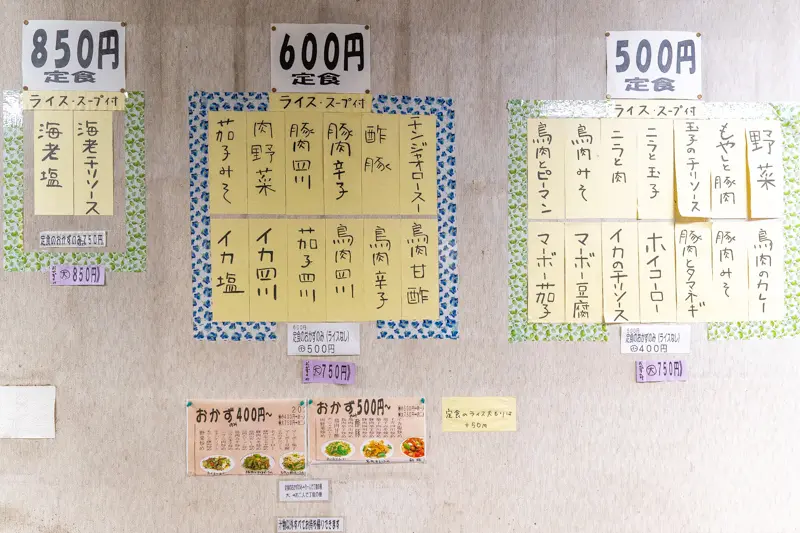 850円
定食
ライス・スープ付
海老チリソース
海老塩
定食のおかずのみ750円
大 850円
600円
定食
ライス・スープ付
チンジャオロースー
酢豚
豚肉辛子
豚肉四川
肉野菜
茄子みそ
鳥肉甘酢
鳥肉辛子
鳥肉四川
茄子四川
イカ四川
イカ塩
600円
定食のおかずのみ(ライスなし)
500円
大 750円
500円
定食
ライス・スープ付
野菜
もやしと豚肉
玉子のチリソース
ニラと玉子
ニラと肉
鳥肉みそ
鳥肉とピーマン
鳥肉のカレー
豚肉みそ
豚肉とタマネギ
ホイコーロー
イカのチリソース
マーボー豆腐
マーボー茄子
定食のおかずのみ(ライスなし)
400円
大 750円
おかず400円〜
おかず500円〜
酢豚
定食のライス大もりは
+50円